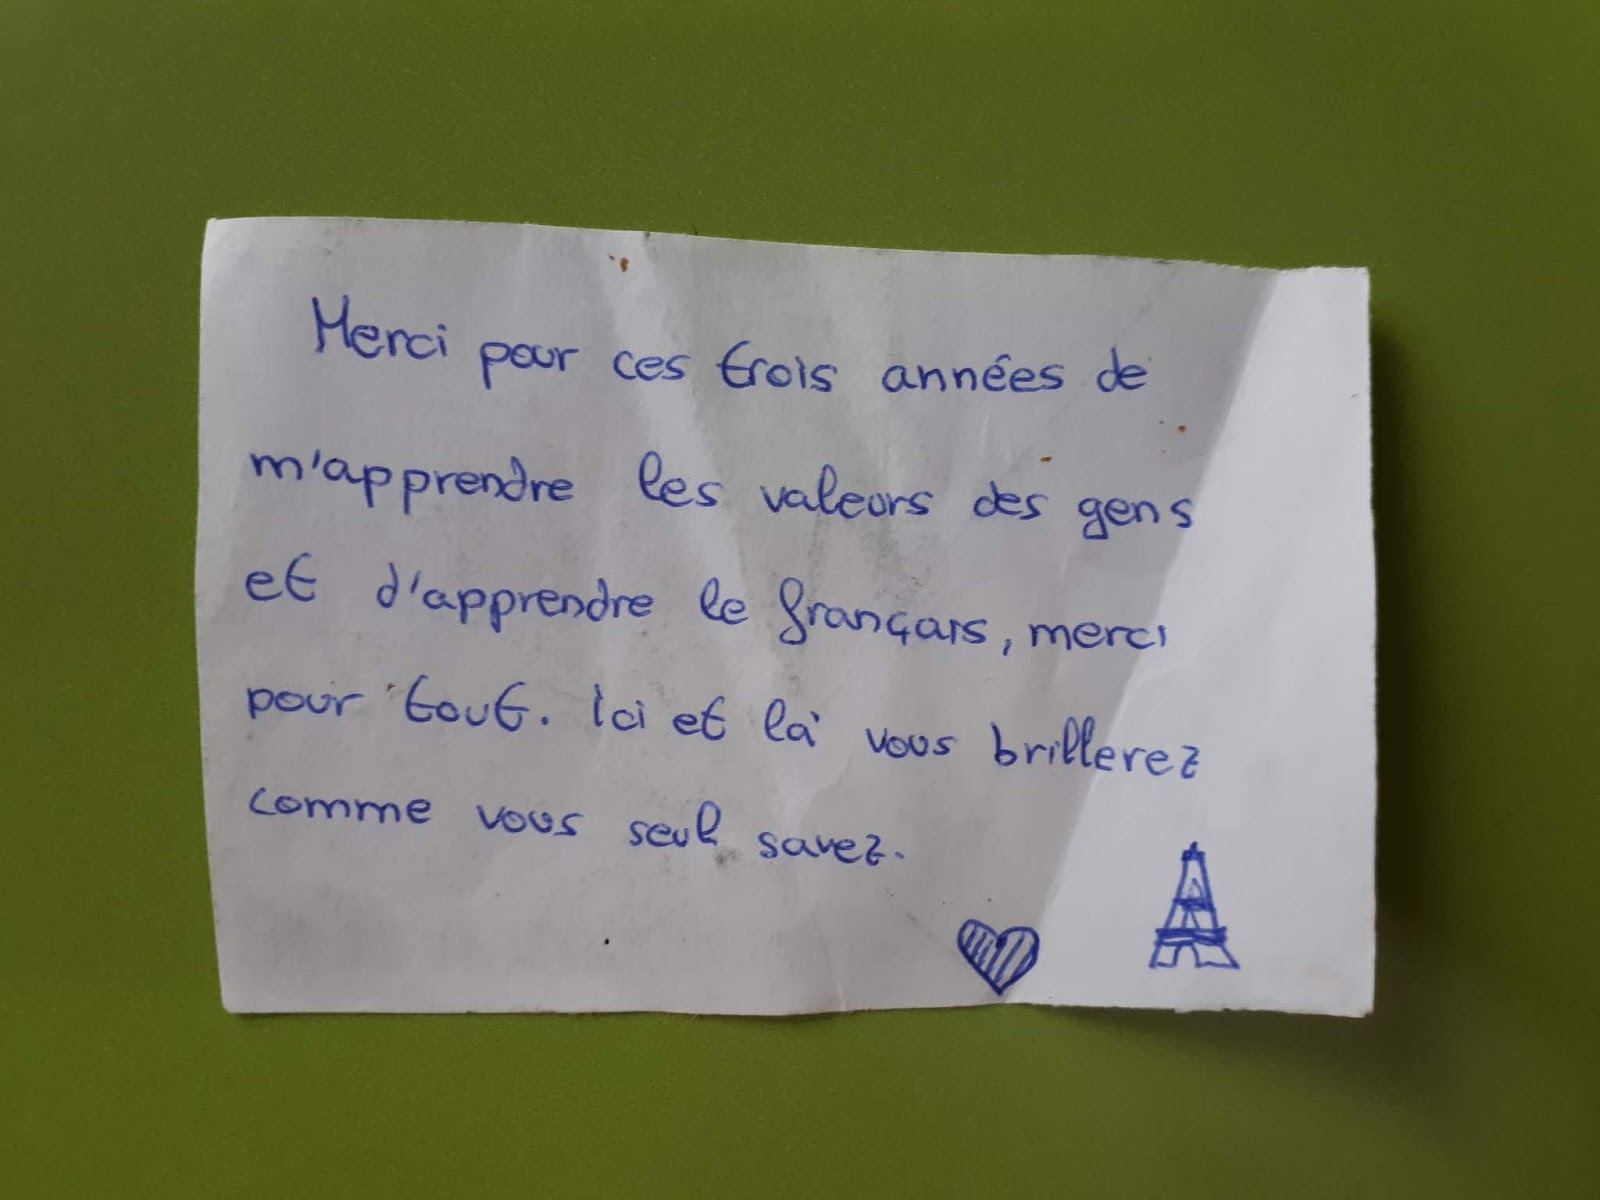 Merci pour ces trois années de
m'apprendre les valeurs des gens
et d'apprendre le français, merci
pour tout. Ici et là vous brillerez
comme vous seul savez.